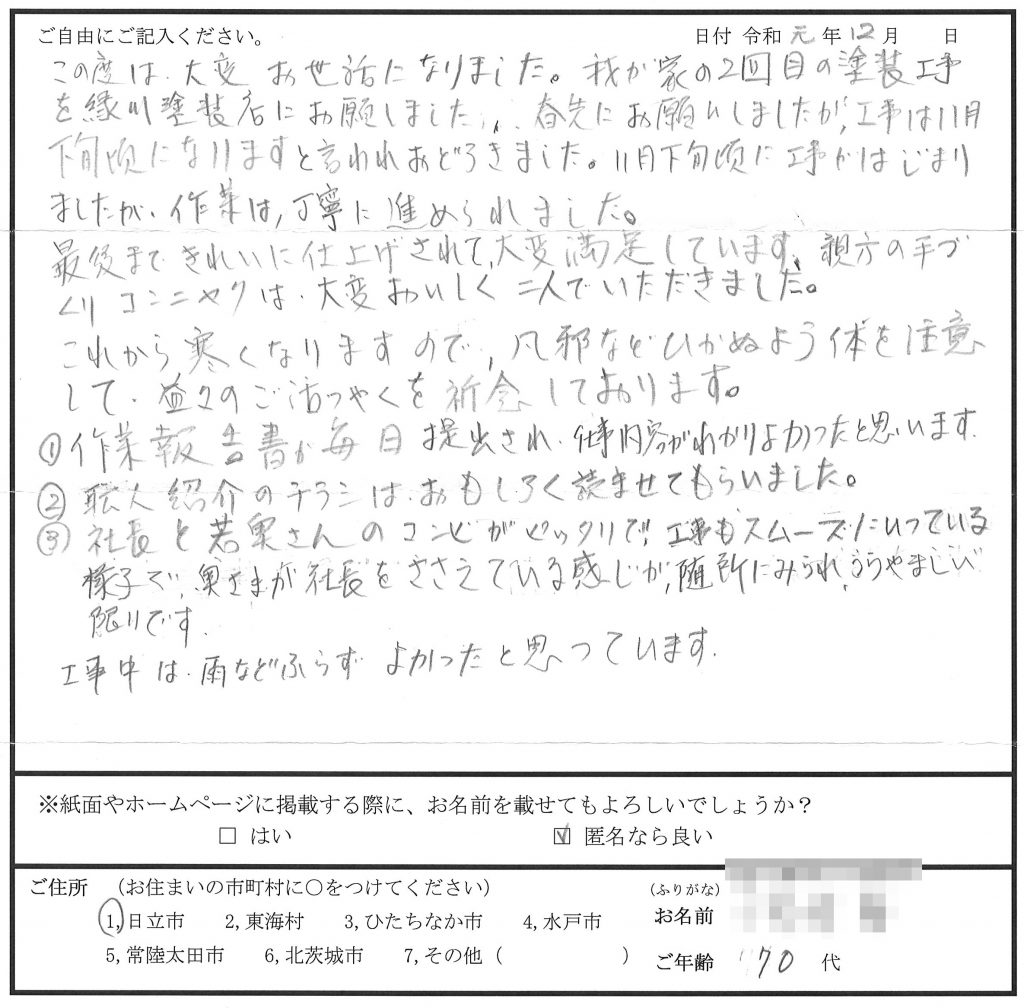 ご自由にご記入ください。 日付 令和 元 年 12 月 日
この度は、大変 お世話になりました。我が家の2回目の塗装工事
を縁川塗装店にお願しました、春先にお願いしましたが、工事は11月
下旬頃になりますと言われおどろきました。11月下旬頃に工事がはじまり
ましたが、作業は、丁寧に進められました。
最後まできれいに仕上げされて、大変満足しています、親方の手づ
くりコンニャクは、大変おいしく二人でいただきました。
これから寒くなりますので、風邪などひかぬよう体を注意
して、益々のご活つやくを祈念しております。
①作業報告書が毎日提出され、仕事内容がわかりよかったと思います。
②職人紹介のチラシは、おもしろく読ませてもらいました。
③社長と若奥さんのコンビがピッタリで、工事もスムーズにいっている
様子で、奥さまが社長をささえている感じが、随所にみられ、うらやましい
限りです。
工事中は、雨などふらず よかったと思っています。
※紙面やホームページに掲載する際に、お名前を載せてもよろしいでしょうか？
□ はい ☑ 匿名なら良い
ご住所 （お住まいの市町村に○をつけてください） （ふりがな）
1,日立市 2,東海村 3,ひたちなか市 4,水戸市 お名前
5,常陸太田市 6,北茨城市 7,その他（ ） ご年齢 70 代